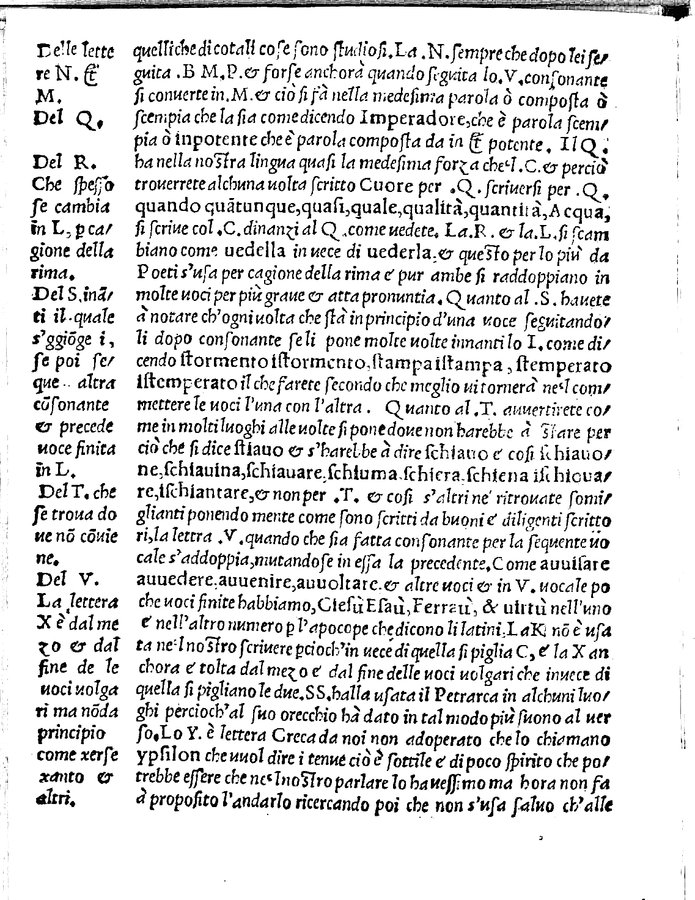 Delle lette
re N. &
M.
Del Q.
Del R.
Che speſſo
ſe cambia
in L, p ca/
gione della
rima.
Del S, inā/
ti il quale
s'ggiōge i,
ſe poi ſe/
que altra
cōſonante
& precede
uoce finita
in L.
Del T. che
ſe troua do
ue nō cōuie
ne.
Del V.
La lettera
X è dal me
zo & dal
fine de le
uoci uolga
ri ma nōda
principio
come xerſe
xanto &
altri.
quelli che di cotali coſe ſono ſtudioſi. La .N. ſempre che dopo lei ſe/
guita .B M.P. & forſe anchora quando ſeguita lo .V. conſonante
ſi conuerte in .M. & ciò ſi fà nella medeſima parola ò compoſta ò
ſcempia che la ſia come dicendo Imperadore, che è parola ſcem/
pia ò inpotente che è parola compoſta da in & potente. Il Q.
ha nella noſtra lingua quaſi la medeſima forza che'l .C. & perciò
trouerrete alchuna uolta ſcritto Cuore per .Q. ſcriuerſi per .Q.
quando quātunque, quaſi, quale, qualità, quantità, Acqua,
ſi ſcriue col .C. dinanzi al Q. come uedete. La .R. & la .L. ſi ſcam
biano come uedella in uece di uederla. & queſto per lo più da
Poeti s'uſa per cagione della rima é pur ambe ſi raddoppiano in
molte uoci per più graue & atta pronuntia. Quanto al .S. hauete
à notare ch'ogni uolta che ſtà in principio d'una uoce ſeguitando/
li dopo conſonante ſe li pone molte uolte innanti lo I. come di/
cendo ſtormento iſtormento, ſtampa iſtampa, ſtemperato
iſtemperato il che farete ſecondo che meglio ui tornerà ne'l com/
mettere le uoci l'una con l'altra. Quanto al .T. auuertirete co/
me in molti luoghi alle uolte ſi pone doue non harebbe à ſtare per
ciò che ſi dice ſtiauo & s'harebbe à dire ſchiauo é coſi ſchiauo/
ne, ſchiauina, ſchiauare, ſchiuma, ſchiera, ſchiena iſchioua/
re, iſchiantare, & non per .T. & coſi s'altri ne' ritrouate ſomi/
glianti ponendo mente come ſono ſcritti da buoni é diligenti ſcritto
ri, la lettra .V. quando che ſia fatta conſonante per la ſequente uo
cale s'addoppia, mutandoſe in eſſa la precedente. Come auuiſare
auuedere, auuenire, auuoltare. & altre uoci & in V. uocale po
che uoci finite habbiamo, Gieſù Eſaù, Ferraù, & uirtù nell'uno
é nell'altro numero p l'apocope che dicono li latini. La K nō è uſa
ta ne'l noſtro ſcriuere p cioch'in uece di quella ſi piglia C, é la X an
chora é tolta dal mezo é dal fine delle uoci uolgari che inuece di
quella ſi pigliano le due .SS. halla uſata il Petrarca in alchuni luo/
ghi percioch'al ſuo orecchio hà dato in tal modo più ſuono al uer
ſo, Lo Y. è lettera Greca da noi non adoperato che lo chiamano
ypſilon che uuol dire i tenue ciò è ſottile é di poco ſpirito che po/
trebbe eſſere che ne'l noſtro parlare lo haueſſimo ma hora non fa
à propoſito l'andarlo ricercando poi che non s'uſa ſaluo ch'alle